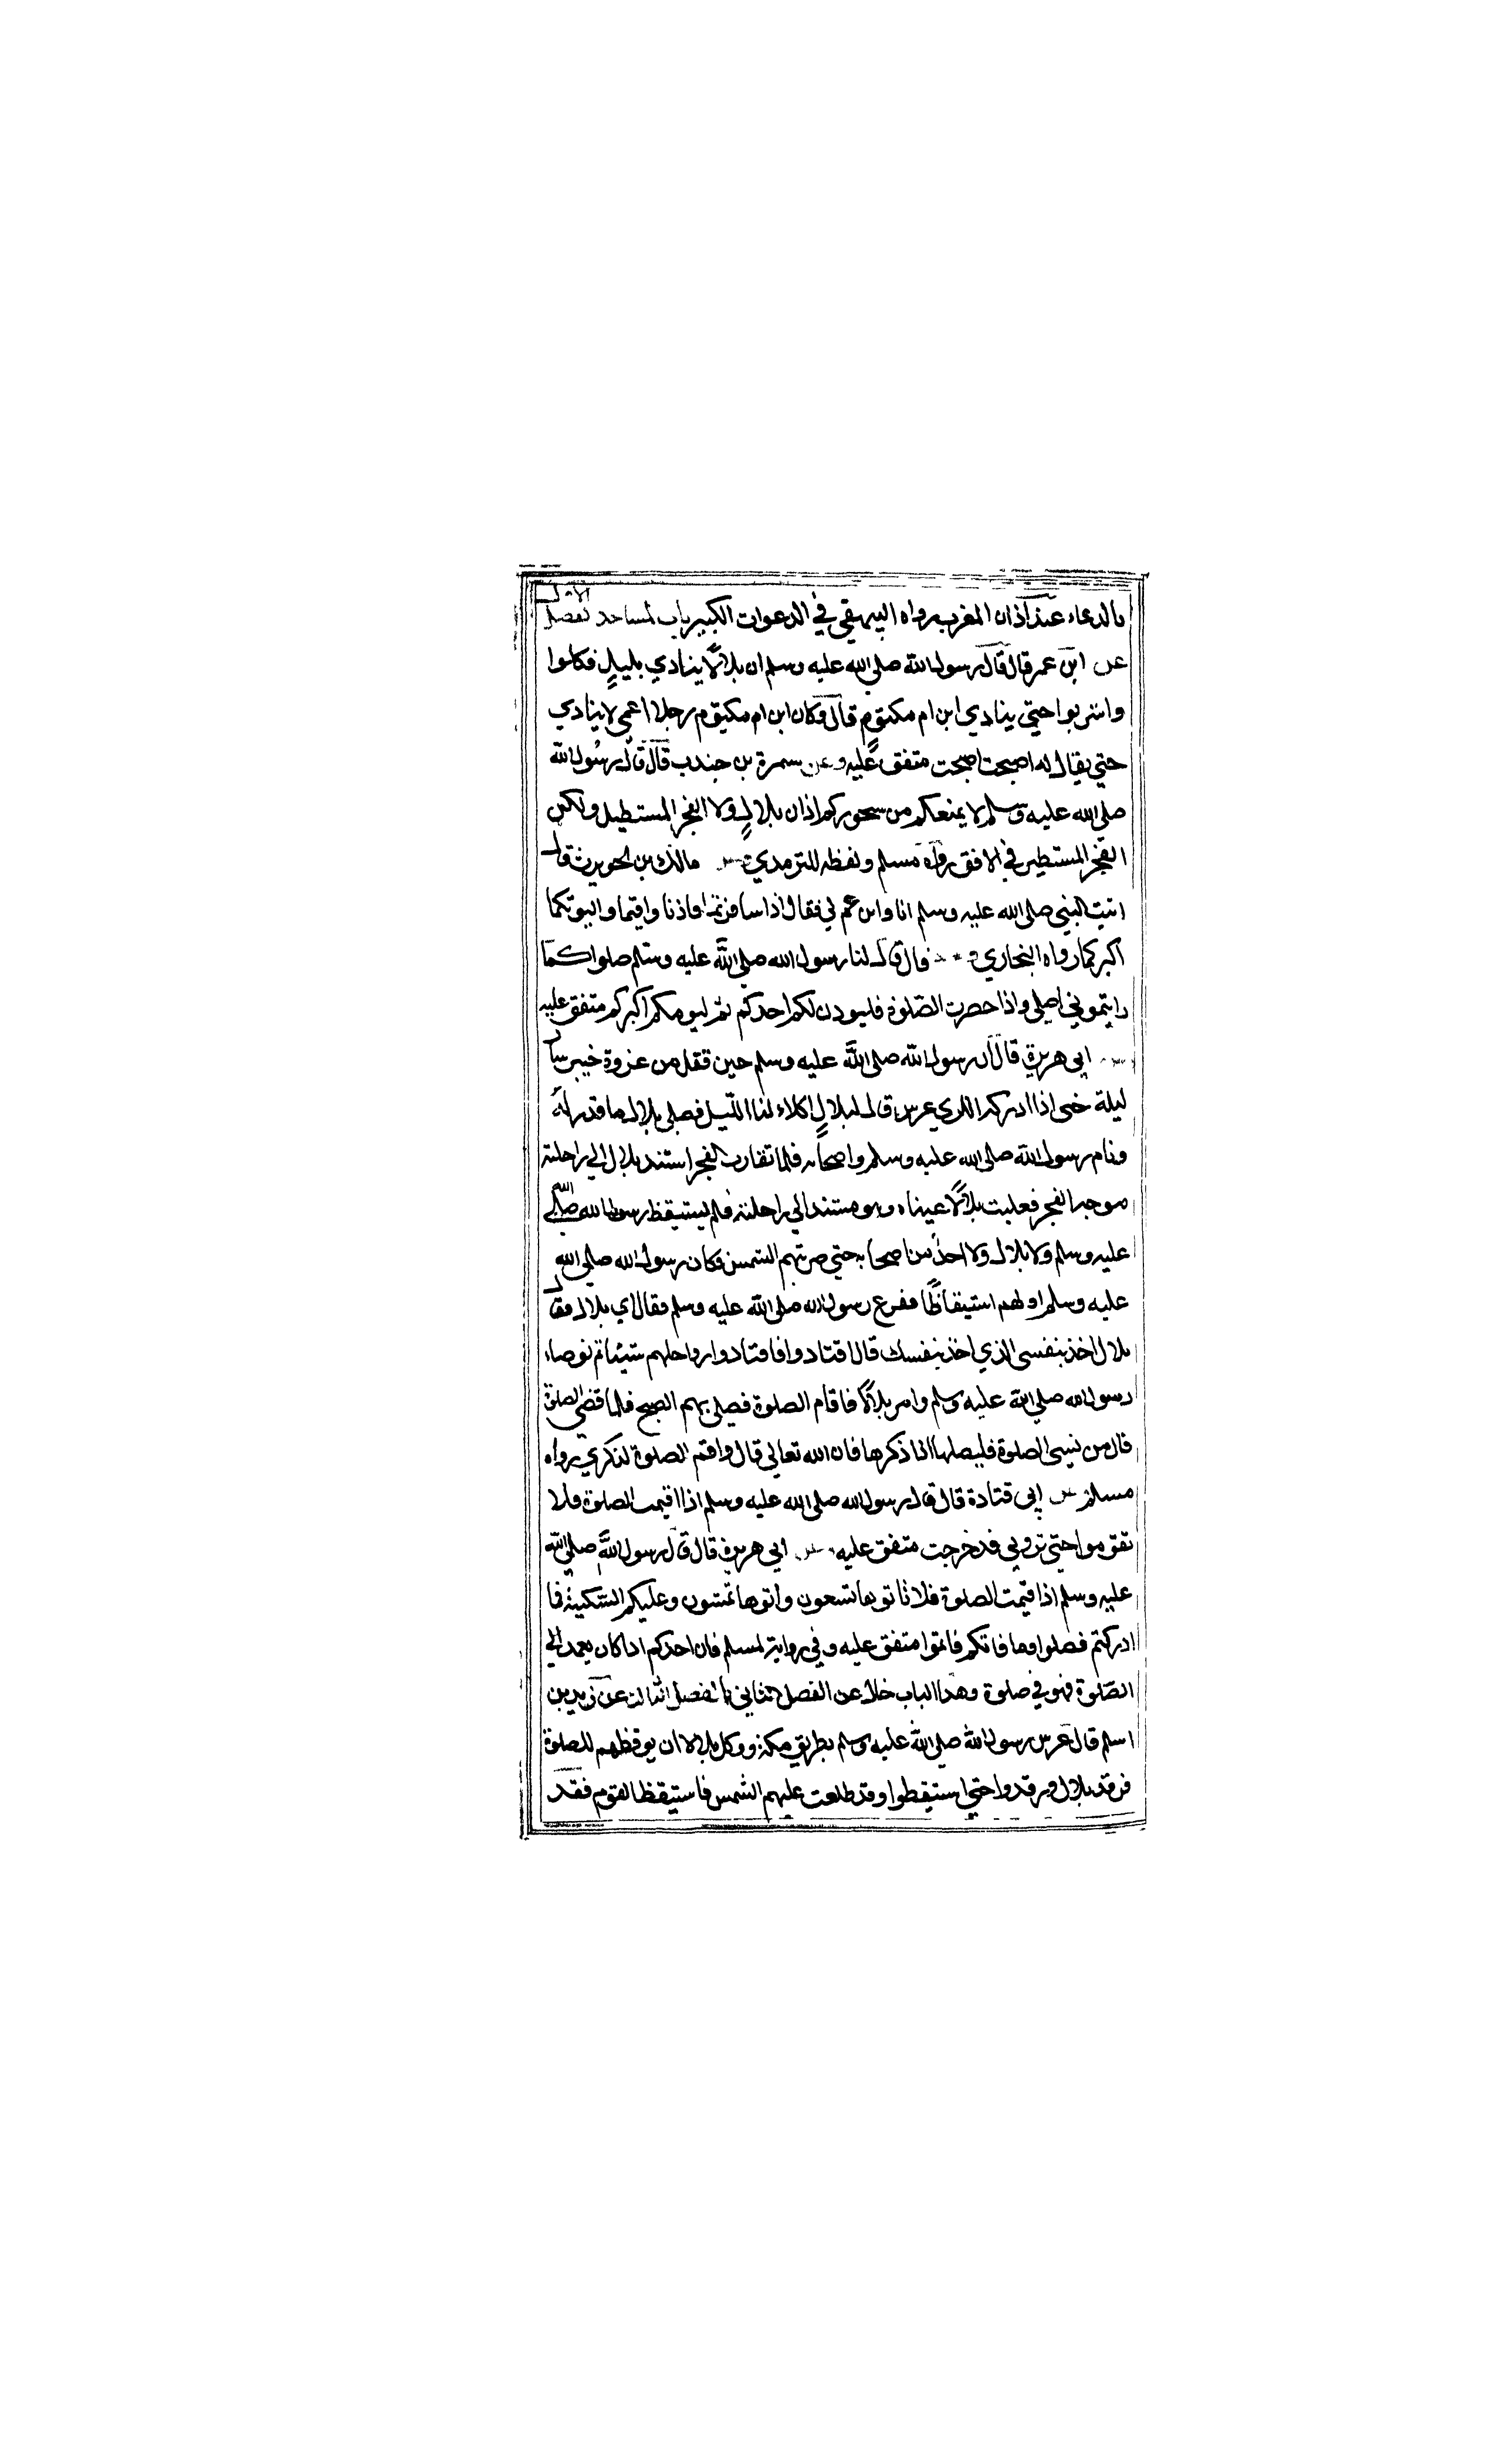 بالدعاء عند اذان المغرب رواه البيهقي في الدعوات الكبير باب المساجد الفصل الاول
عن ابن عمر قال قال رسول الله صلى الله عليه وسلم ان بلالًا ينادي بليلٍ فكلوا
واشربوا حتي ينادي ابن ام مكتومٍ قال وكان ابن ام مكتوم رجلا اعمى لا ينادي
حتي يقال له اصبحت اصبحت متفق عليه وعن سمرة بن جندب قال قال رسُول الله
صلى الله عليه وسلم لا يمنعكم من سحوركم اذان بلالٍ ولا الفجر المستطيل ولكن
الفجر المستطير في الافق رواه مسلم ولفظه للترمذي عن مالك بن الحويرث قال
اتيت النبي صلى الله عليه وسلم انا وابن عم لي فقال اذا سافرتما فاذنا واقيما واليوتكما
اكبركما رواه البخاري وعنه قال قال لنا رسول الله صلى الله عليه وسلم صلوا كما
رايتموني اصلي واذا حضرت الصّلوة فليوذن لكم احدكم ثم ليومكم اكبركم متفق عليه
عن ابي هريرة قال ان رسول الله صلى الله عليه وسلم حين قفل من غزوة خيبر سار
ليلة حتى اذا ادركه الكري عرس قال لبلالٍ اكلاء لنا الليل فصلى بلال ما قدر له
ونام رسول الله صلى الله عليه وسلم واصحابه فلما تقارب الفجر استند بلال الي راحلته
موجه الفجر فغلبت بلالًا عيناه وهو مستند الي راحلته فلم يستيقظ رسول الله صلى الله
عليه وسلم ولا بلال ولا احدٌ من اصحابه حتي ضربتهم الشمس فكان رسول الله صلى الله
عليه وسلم اولهم استيقاظًا ففزع رسول الله صلى الله عليه وسلم فقال اي بلال فقال
بلال اخذ بنفسى الذي اخذ بنفسك قال اقتادوا فاقتادوا رواحلهم شيئا ثم توضاء
رسول الله صلى الله عليه وسلم وامر بلالًا فاقام الصلوة فصلى بهم الصبح فلما قضى الصلوة
قال من نسى الصلوة فليصلها اذا ذكرها فان الله تعالى قال واقم الصلوة لذكري رواه
مسلم عن ابي قتادة قال قال رسول الله صلى الله عليه وسلم اذا اقيمت الصلوة فلا
تقوموا حتي تروني قد خرجت متفق عليه عن ابي هريرة قال قال رسول الله صلى الله
عليه وسلم اذا قيمت الصلوة فلا تاتوها تسعون واتوها تمشون وعليكم السّكينة فما
ادركتم فصلوا وما فاتكم فاتموا متفق عليه وفي رواية لمسلم فان احدكم اذا كان يعمد الي
الصّلوة فهو في صلوة وهذا الباب خلا عن الفصل الثاني الفصل الثالث عن زيد بن
اسلم قال عرس رسول الله صلى الله عليه وسلم بطريق مكة ووكل بلالا ان يوقظهم للصلوة
فرقد بلال ورقدوا حتي استيقظوا وقد طلعت عليهم الشمس فاستيقظ القوم فقد